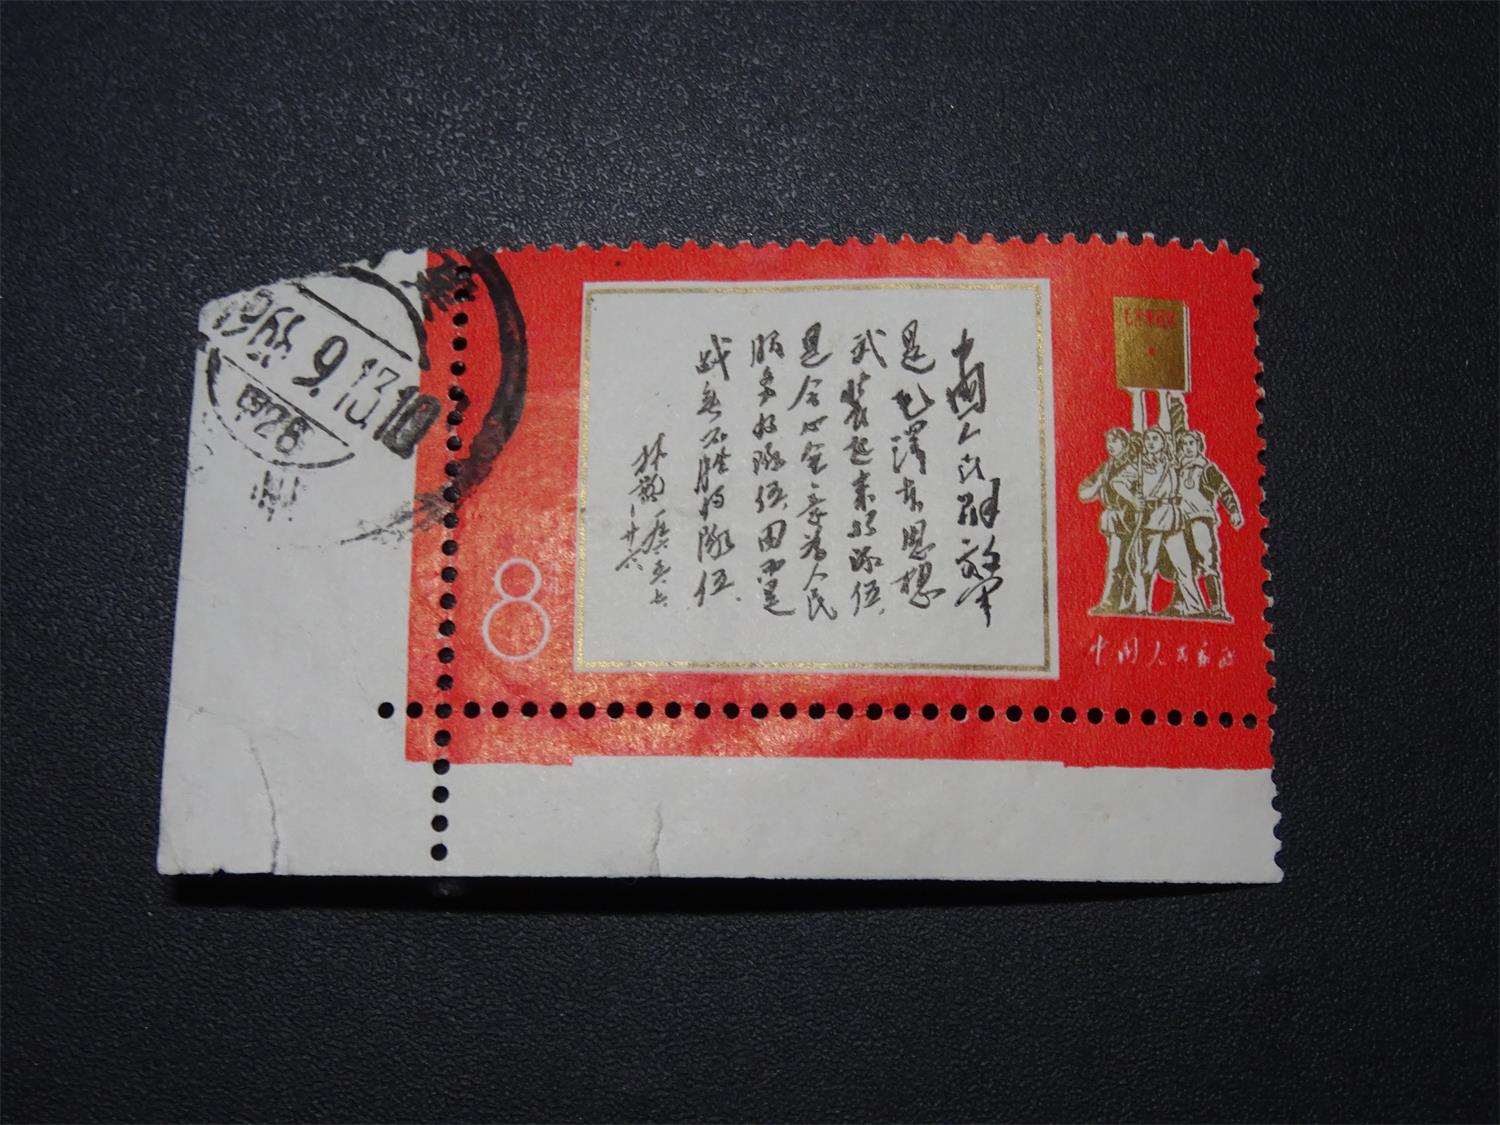 中国人民解放军
是毛泽东思想
武装起来的队伍,
是全心全意为人民
服务的队伍,因而是
战无不胜的队伍.
林彪
廿六
8
中国人民邮政
1968.9.13.10